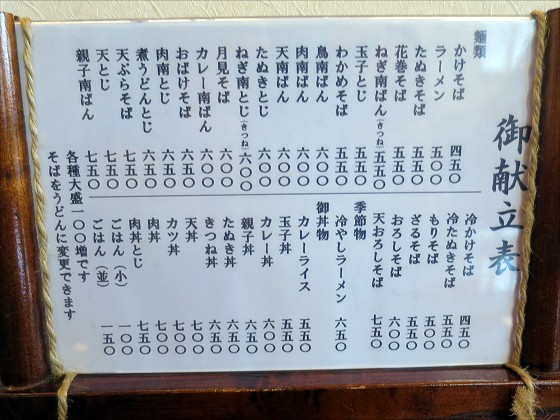 御献立表
麺類
かけそば 四五〇
ラーメン 五〇〇
たぬきそば 五五〇
花巻そば 五五〇
ねぎ南ばん(きつね) 五五〇
玉子とじ 五五〇
わかめそば 五五〇
鳥南ばん 六〇〇
肉南ばん 六〇〇
天南ばん 六〇〇
たぬきとじ 六〇〇
ねぎ南とじ(きつね) 六〇〇
月見そば 六〇〇
カレー南ばん 六〇〇
おばけそば 六五〇
肉南とじ 六五〇
煮うどんとじ 六五〇
天ぷらそば 七五〇
天とじ 七五〇
親子南ばん 七五〇
冷かけそば 四五〇
冷たぬきそば 五五〇
もりそば 五〇〇
ざるそば 五五〇
おろしそば 六〇〇
天おろしそば 七五〇
季節物
冷やしラーメン 六五〇
御丼物
カレーライス 五五〇
玉子丼 五五〇
カレー丼 六〇〇
親子丼 六五〇
たぬき丼 六五〇
きつね丼 六五〇
天丼 七〇〇
カツ丼 七〇〇
肉丼 七〇〇
肉丼とじ 七五〇
ごはん(小) 一〇〇
ごはん(並) 一五〇
各種大盛一〇〇増です
そばをうどんに変更できます